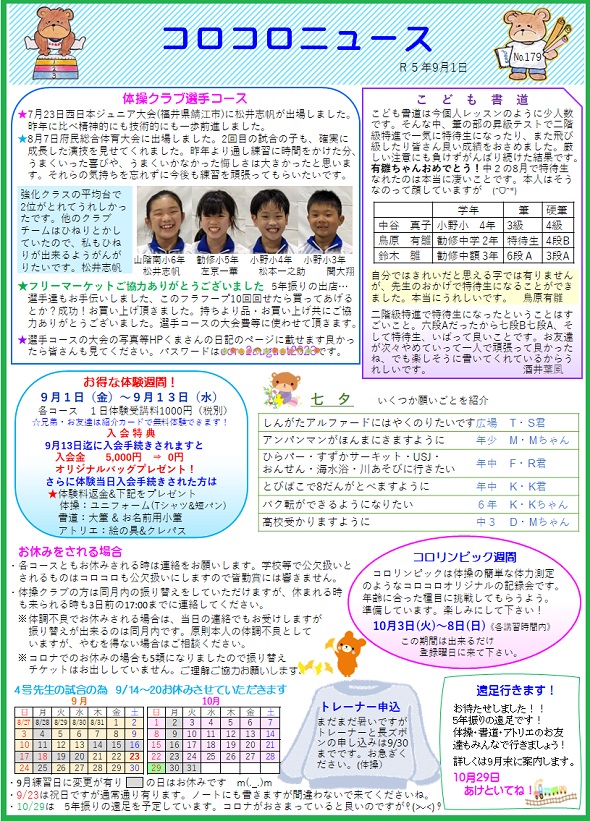 コロコロニュース
No.179
R５年9月1日
体操クラブ選手コース
★7月23日西日本ジュニア大会(福井県鯖江市)に松井志帆が出場しました。
昨年に比べ精神的にも技術的にも一歩前進しました。
★8月7日府民総合体育大会に出場しました。2回目の試合の子も、確実に
成長した演技を見せてくれました。昨年より通し練習に時間をかけた分、
うまくいった喜びや、うまくいかなかった悔しさは大きかったと思いま
す。それらの気持ちを忘れずに今後も練習を頑張ってもらいたいです。
強化クラスの平均台で
2位がとれてうれしかっ
たです。他のクラブ
チームはひねりとかし
ていたので、私もひね
りが出来るようがんが
りたいです。松井志帆
山階南小6年 勧修小5年 小野小4年 小野小3年
松井志帆 左京一華 松本一之助 関大翔
★フリーマーケットご協力ありがとうございました 5年振りの出店…
選手達もお手伝いしました、このフラフープ10回回せたら買ってあげる
とか？成功！お買い上げ頂きました。持ちより品・お買い上げ共にご協
力ありがとうございました。選手コースの大会費等に使わせて頂きます。
★選手コースの大会の写真等HPくまさんの日記のページに載せます良かっ
たら皆さんも見てください。パスワードは
です。
こども書道
こども書道は今個人レッスンのように少人数
です。そんな中、筆の部の昇級テストで二階
級特進で一気に特待生になったり、また飛び
級したり皆さん良い成績をおさめました。厳
しい注意にも負けずがんばり続けた結果です。
有雛ちゃんおめでとう！中２の8月で特待生
なれたのは本当に凄いことです。本人はそう
なのって顔していますが (^O^*)
学年 筆 硬筆
中谷 真子 小野小 4年 3級 4級
鳥原 有雛 勧修中学2年 特待生 4段B
鈴木 雛 勧修中額3年 6段A 3段A
自分ではきれいだと思える字では有りません
が、先生のおかげで特待生になることができ
ました。本当にうれしいです。 鳥原有雛
二階級特進で特待生になったということはす
ごいこと。六段Aだったから七段B七段A、そ
して特待生、いばって良いことです。お友達
が次々やめていって一人で頑張って良かった
ね、でも楽しそうに書いてくれているからう
れしいです。 酒井葉風
お得な体験週間！
９月１日（金）～９月１３日（水）
各コース １日体験受講料1000円（税別）
☆兄弟・お友達は紹介カードで無料体験できます！
入 会 特 典
9月13日迄に入会手続きされますと
入会金 5,000円 ⇒ 0円
オリジナルバッグプレゼント！
さらに体験当日入会手続きされた方は
★体験料返金&下記をプレゼント
体操：ユニフォーム(Tシャツ&短パン)
書道：大筆 & お名前用小筆
アトリエ：絵の具&クレパス
七 夕 いくつか願いごとを紹介
しんがたアルファードにはやくのりたいです 広場 T・S君
アンパンマンがほんまにきますように 年少 M・Mちゃん
ひらパー・すずかサーキット・USJ・
おんせん・海水浴・川あそびに行きたい 年中 F・R君
とびばこで8だんがとべますように 年中 K・K君
バク転ができるようになりたい ６年 K・Kちゃん
高校受かりますように 中３ D・Mちゃん
お休みをされる場合
・各コースともお休みされる時は連絡をお願いします。学校等で公欠扱いと
されるものはコロコロも公欠扱いにしますので皆勤賞には響きません。
・体操クラブの方は同月内の振り替えをしていただけますが、休まれる時
も来られる時も3日前の17:00までに連絡してください。
※体調不良でお休みされる場合は、当日の連絡でもお受けしますが
振り替えが出来るのは同月内です。原則本人の体調不良として
いますが、やむを得ない場合はご相談ください。
※コロナでのお休みの場合も5類になりましたので振り替え
チケットはお出ししていません。ご理解ご協力お願いします。
コロリンピック週間
コロリンピックは体操の簡単な体力測定
のようなコロコロオリジナルの記録会です。
年齢に合った種目に挑戦してもらうよう。
準備しています。楽しみにして下さい！
10月3日(火)～8日(日) (各講習時間内)
この期間は出来るだけ
登録曜日に来て下さい。
４号先生の試合の為 9/14～20お休みさせていただきます
９月 10月
日 月 火 水 木 金 土 日 月 火 水 木 金 土
8/27 8/28 8/29 8/30 8/31 1 2 1 2 3 4 5 6 7
3 4 5 6 7 8 9 8 9 10 11 12 13 14
10 11 12 13 14 15 16 15 16 17 18 19 20 21
17 18 19 20 21 22 23 22 23 24 25 26 27 28
24 25 26 27 28 29 30 29 30 31
・9月練習日に変更が有り の日はお休みです m(._.)m
・9/23は祝日ですが通常通り有ります。ノートにも書きますが間違わないで来てくださいね。
・10/29は 5年振りの遠足を予定しています。コロナがおさまっていると良いのですが
トレーナー申込
まだまだ暑いですが
トレーナーと長ズボ
ンの申し込みは9/30
までです。お急ぎく
ださい。(体操)
遠足行きます！
お待たせしました！！
5年振りの遠足です！
体操・書道・アトリエのお友
達もみんなで行きましょう！
詳しくは9月末に案内します。
10月29日
あけといてね！